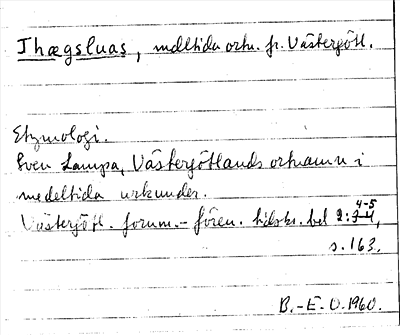 Thægsluas, medeltida ortn. fr. Västergötl.
Etymologi.
Sven Lampa, Västergötlands ortnamn i
medeltida urkunder.
Västergötl. fornm.-fören. tidskr. bd 2: 4-5,
s. 163.
B.-E. O. 1960.